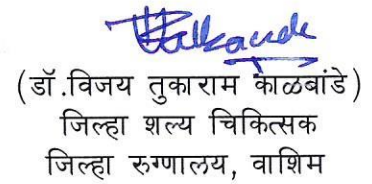 (डॉ.विजय तुकाराम काळबांडे)
जिल्हा शल्य चिकित्सक
जिल्हा रुग्णालय, वाशिम